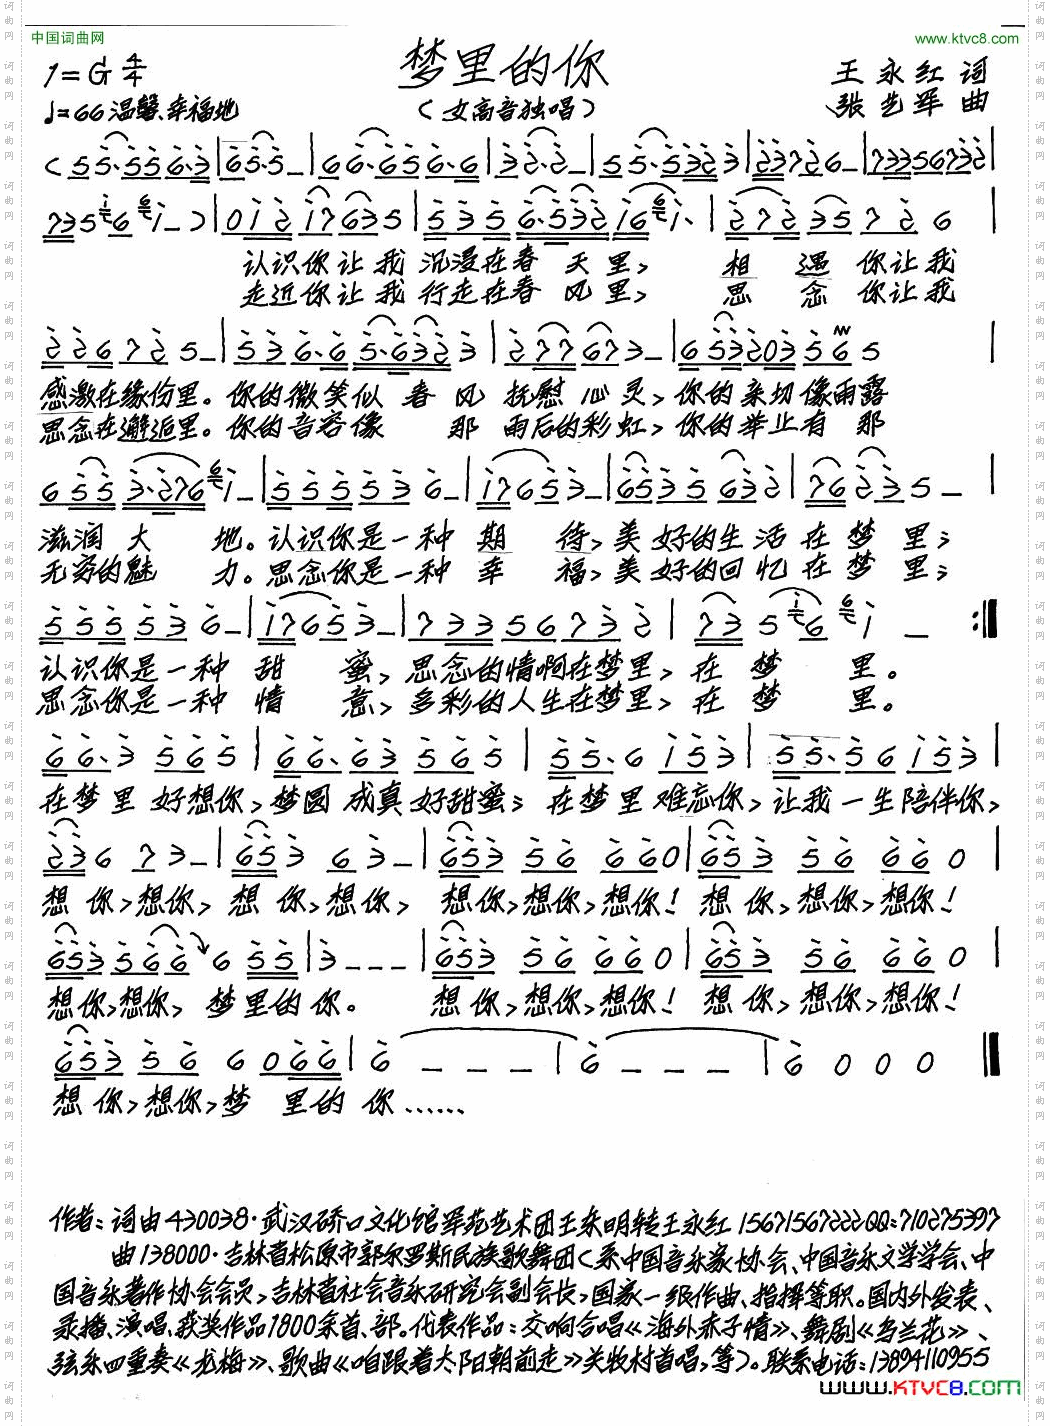 中国词曲网
www.ktvc8.com
1=G 4/4
梦里的你
王永红 词
♩=66 温馨、幸福地
(女高音独唱)
张艺军 曲
认识你让我 沉浸在春 天里, 相 遇 你让我
走近你让我 行走在春 风里, 思 念 你让我
感激在缘份里。你的微笑似 春 风 抚慰 心 灵, 你的 亲切像雨露
思念在邂逅里。你的音容像 那 雨后的彩虹, 你的 举止有 那
滋润 大 地。认识你是一种 期 待, 美 好的生 活 在 梦 里;
无穷的魅 力。思念你是一种 幸 福, 美 好的回 忆 在 梦 里;
认识你是一种 甜 蜜, 思念的情啊在梦里, 在 梦 里。
思念你是一种 情 意, 多彩的人生在梦里, 在 梦 里。
在梦 里 好想你, 梦圆 成真好甜蜜; 在梦 里 难忘你, 让我一生陪伴你,
想 你, 想你, 想 你, 想你, 想你, 想你, 想你! 想 你, 想你, 想你!
想你, 想你, 梦里的 你。 想 你, 想你, 想你! 想 你, 想你, 想你!
想 你, 想你, 梦 里的 你……
作者: 词曲430038·武汉硚口文化馆军苑艺术团王东明转王永红 15671567222QQ:710275397
曲138000·吉林省松原市郭尔罗斯民族歌舞团(系中国音乐家协会、中国音乐文学学会、中
国音乐著作协会会员,吉林省社会音乐研究会副会长,国家一级作曲、指挥等职。国内外发表、
录播、演唱、获奖作品1800余首、部。代表作品: 交响合唱《海外赤子情》、舞剧《乌兰花》、
弦乐四重奏《龙梅》、歌曲《咱跟着太阳朝前走》关牧村首唱,等)。联系电话:13894110955
www.KTVC8.com